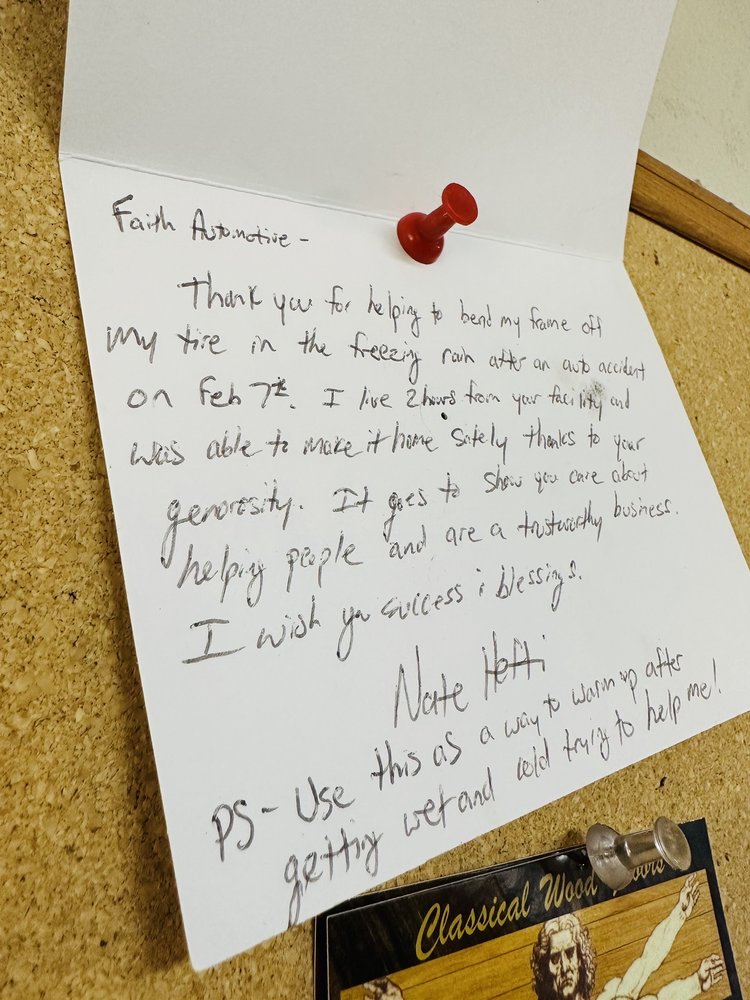 Faith Automotive -
Thank you for helping to bend my frame off
my tire in the freezing rain after an auto accident
on Feb 7th. I live 2 hours from your facility and
was able to make it home safely thanks to your
generosity. It goes to show you care about
helping people and are a trustworthy business.
I wish you success & blessings.
Nate Hefti
PS- Use this as a way to warm up after
getting wet and cold trying to help me!
Classical Wood Floors